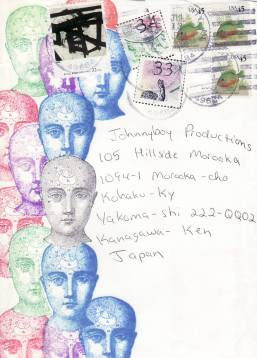 34
USA 15
33
Johnnyboy Productions
105 Hillside Morooka
1094-1 Morooka-cho
Kohoku-Ky
Yakoma-shi 222-0002
Kanagawa-Ken
Japan